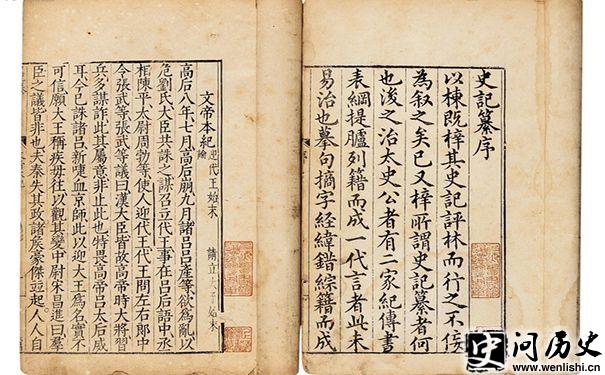 史記纂序
以棟既梓其史記評林而行之不佞
為叙之矣已又梓所謂史記纂者何
也後之治太史公者有二家紀傳書
表綱提臚列籍而成一代言者此未
易治也摹句摘字經緯錯綜籍而成
文帝本紀 迎代王始末 請立太子始末
高后八年七月高后崩九月諸呂呂產等欲為亂以
危劉氏大臣共誅之謀召立代王事在呂后語中丞
相陳平太尉周勃等使人迎代王代王問左右郎中
令張武等張武等議曰漢大臣皆故高帝時大將習
兵多謀詐此其屬意非止此也特畏高帝呂太后威
耳今已誅諸呂新啑血京師此以迎大王為名實不
可信願大王稱疾毋往以觀其變中尉宋昌進曰羣
臣之議皆非也夫秦失其政諸矦豪傑竝起人人自
史问历史
www.wenlishi.cn